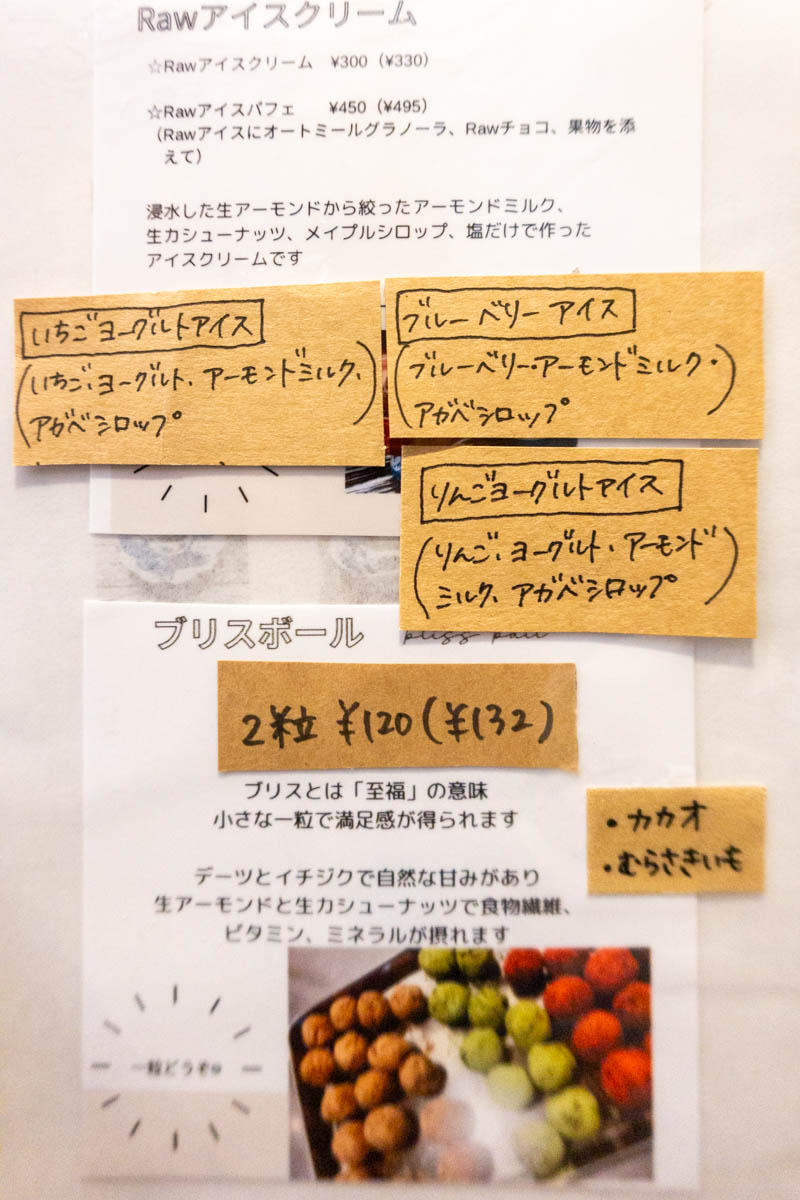 Rawアイスクリーム
☆Rawアイスクリーム ¥300（¥330）
☆Rawアイスパフェ ¥450（¥495）
（Rawアイスにオートミールグラノーラ、Rawチョコ、果物を添
えて）
浸水した生アーモンドから絞ったアーモンドミルク、
生カシューナッツ、メイプルシロップ、塩だけで作った
アイスクリームです
いちごヨーグルトアイス
（いちご、ヨーグルト、アーモンドミルク、
アガベシロップ）
ブルーベリーアイス
（ブルーベリー・アーモンドミルク・
アガベシロップ）
りんごヨーグルトアイス
（りんご、ヨーグルト、アーモンド
ミルク、アガベシロップ）
ブリスボール
bliss ball
2粒 ¥120（¥132）
ブリスとは「至福」の意味
小さな一粒で満足感が得られます
・カカオ
・むらさきいも
デーツとイチジクで自然な甘みがあり
生アーモンドと生カシューナッツで食物繊維、
ビタミン、ミネラルが摂れます
一粒どうぞ